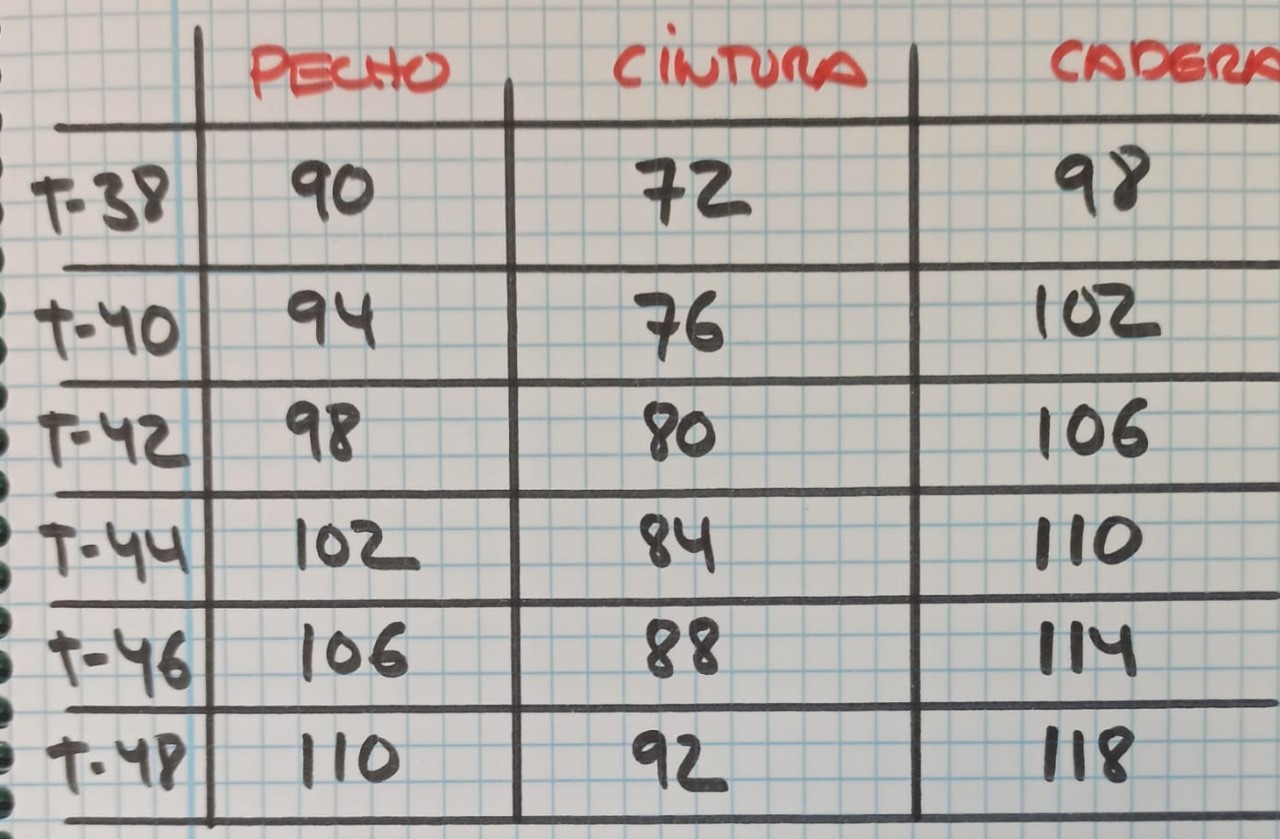 PECHO CINTURA CADERA
T-38 90 72 98
T-40 94 76 102
T-42 98 80 106
T-44 102 84 110
T-46 106 88 114
T-48 110 92 118